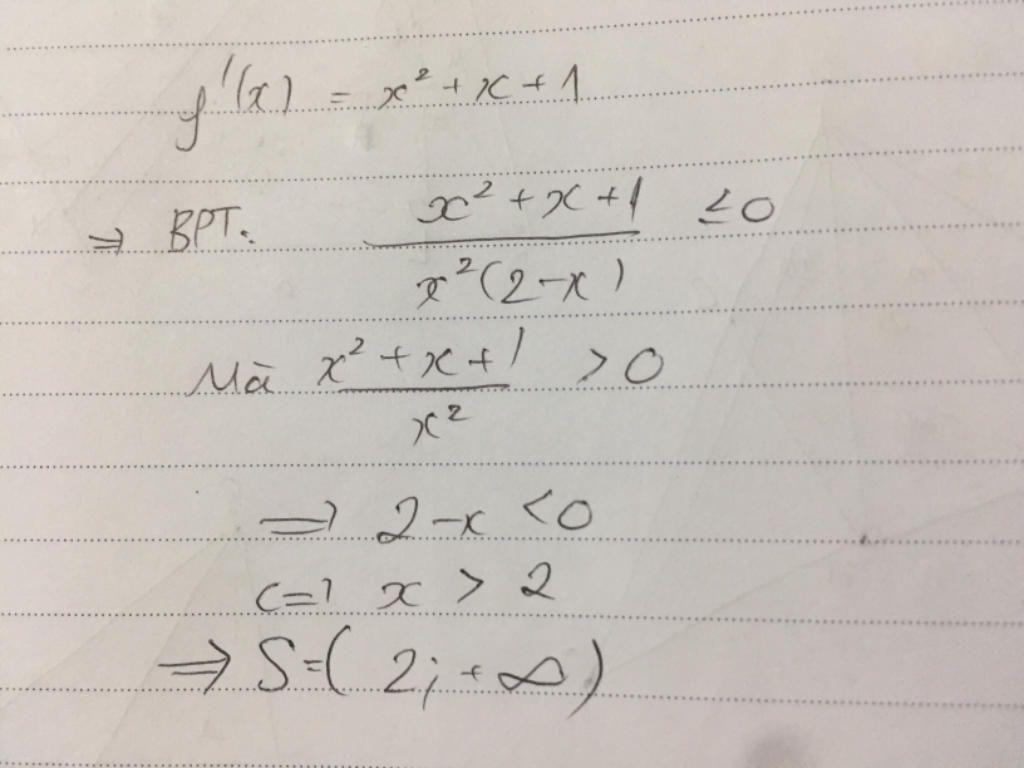 f'(x) = x² + x + 1
⇒ BPT. (x² + x + 1)/(x²(2-x)) ≤ 0
Mà (x² + x + 1)/x² > 0
⇒ 2-x < 0
<=> x > 2
⇒ S=( 2; +∞)